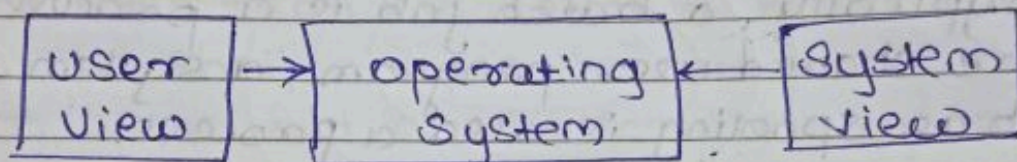 user
view
operating
system
system
view